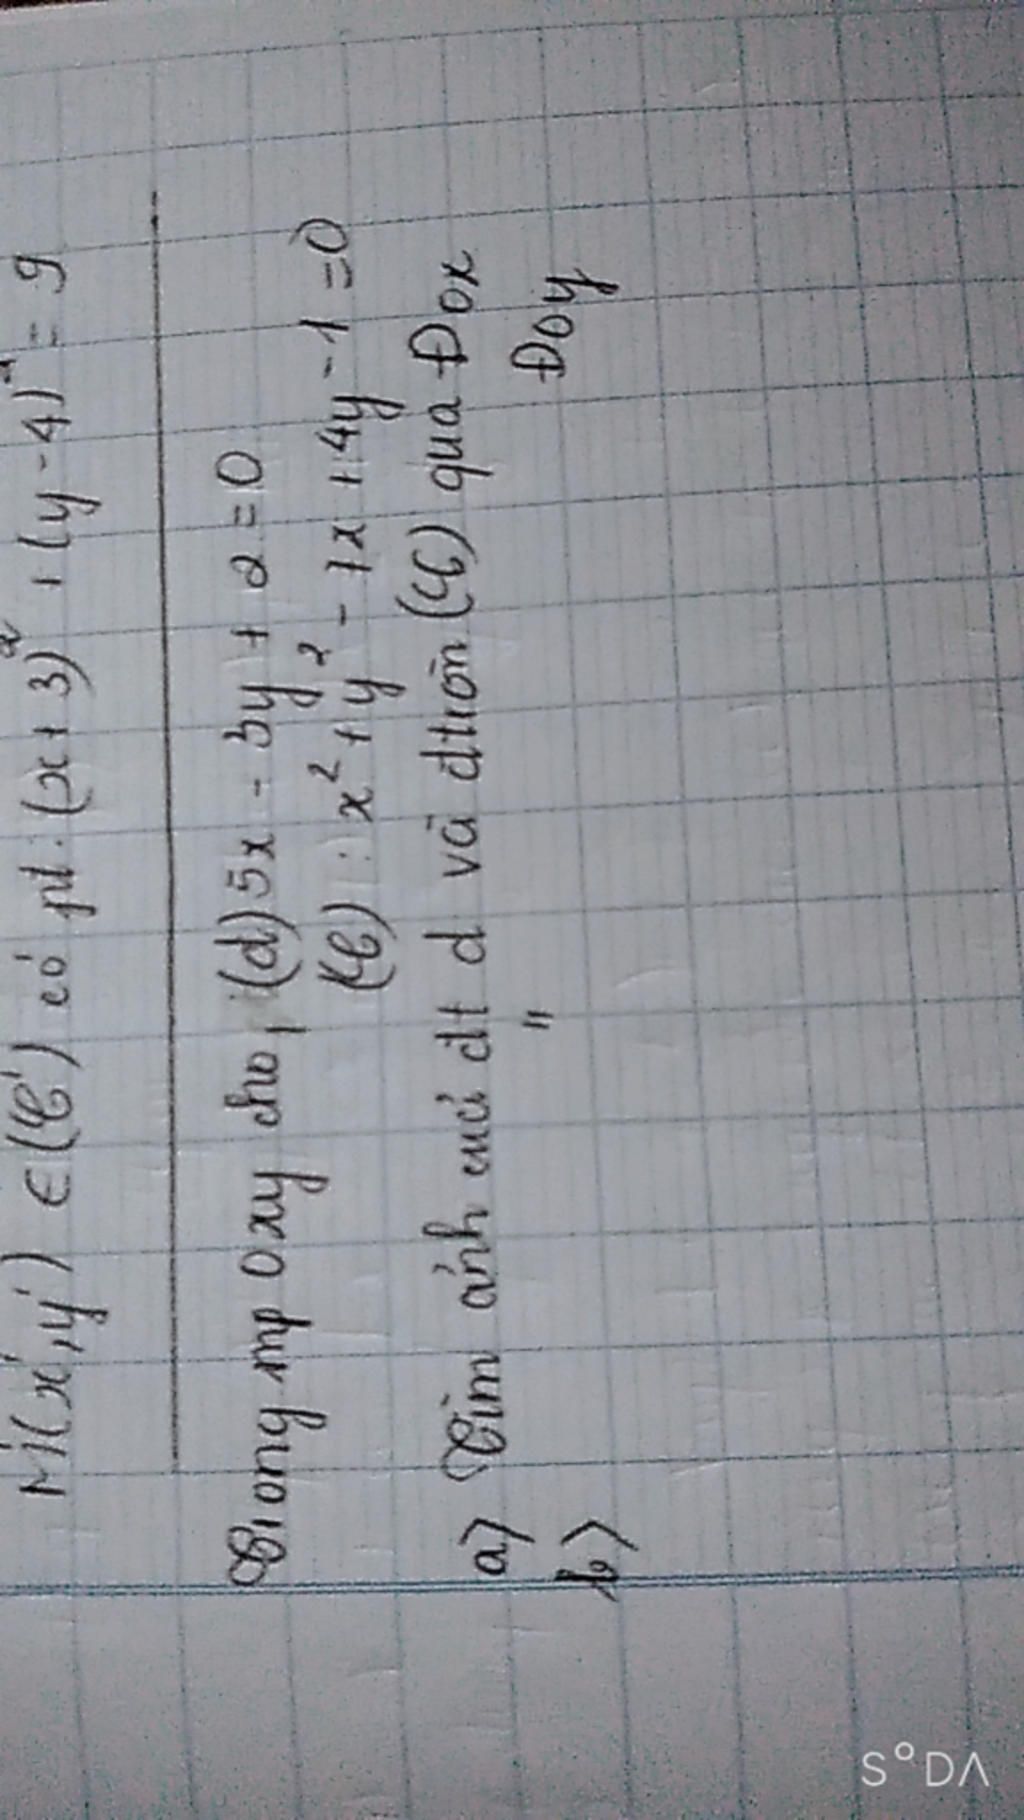 M'(x',y') ∈ (C') có pt: (x+3)² + (y-4)² = 9
Trong mp Oxy cho, (d) 5x - 3y + 2 = 0
(C): x² + y² - 7x + 4y - 1 = 0
a) Tìm ảnh của đt d và đtròn (C) qua Đox
b) " Đoy
SODA